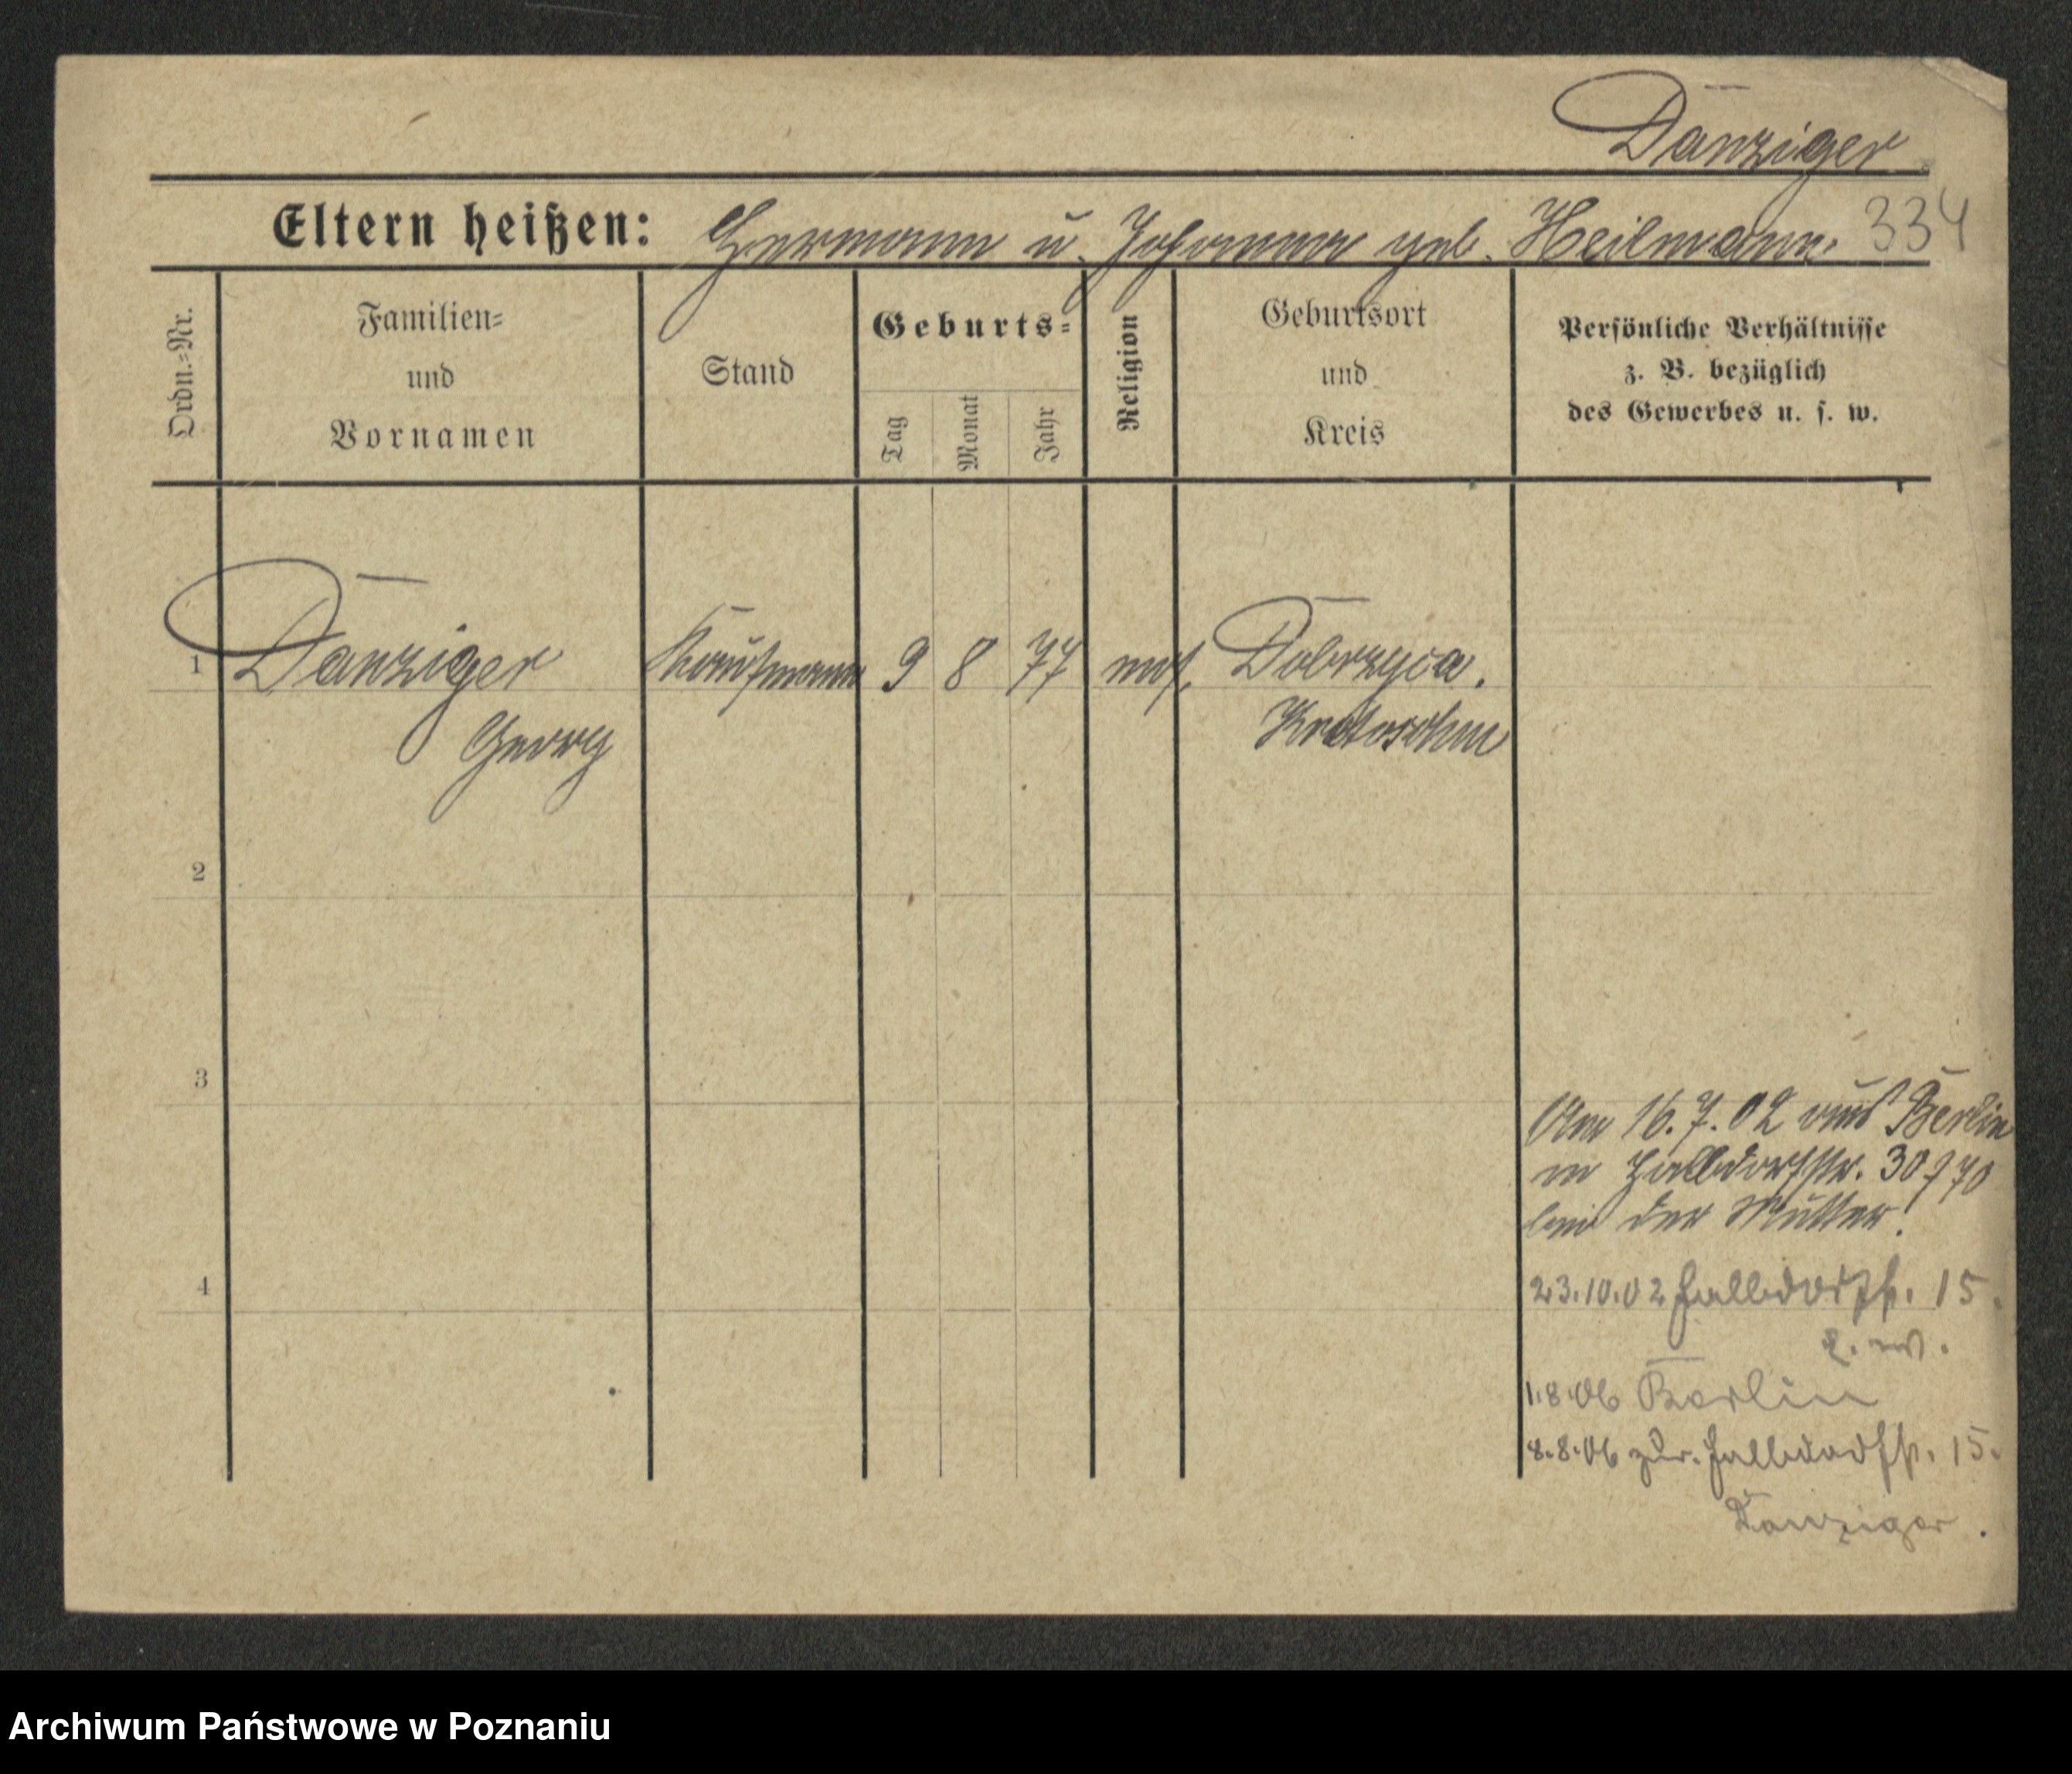 Danziger
Eltern heißen: Hermann u. Johanna geb. Heilmann. 334
Ordn.=Nr.
Familien=
und
Vornamen
Stand
Geburts=
Tag
Monat
Jahr
Religion
Geburtsort
und
Kreis
Persönliche Verhältnisse
z. B. bezüglich
des Gewerbes u. s. w.
1 Danziger Kaufmann 9 8 77 mos. Dobrzyca.
Georg Krotoschin
2
3
Am 16.7.02 aus Berlin
Halbdorfstr. 30
bei der Mutter!
4
23.10.02 Halbdorfstr. 15.
1.8.06 Berlin
8.8.06 zur. Halbdorfstr. 15.
Danziger.
Archiwum Państwowe w Poznaniu